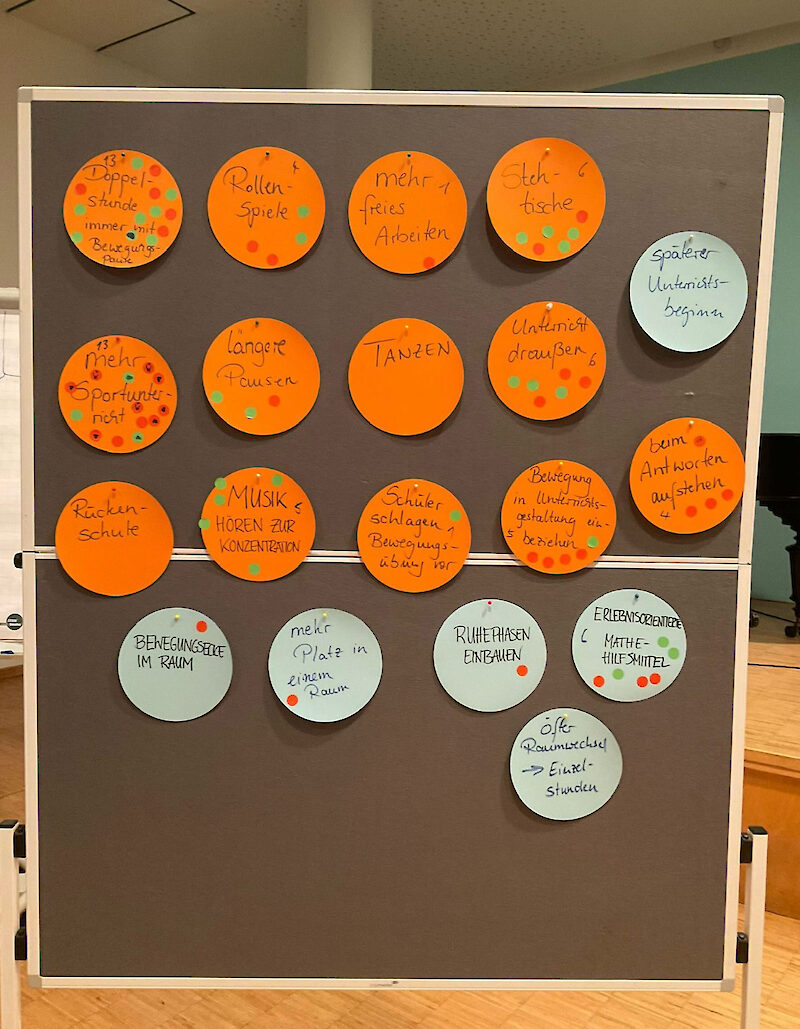 13
Doppel-
stunde
immer mit
Bewegungs-
Pause
4
Rollen-
Spiele
mehr 1
freies
Arbeiten
Steh- 6
tische
späterer
Unterrichts-
beginn
13
mehr
Sportunter-
richt
längere
Pausen
TANZEN
Unterricht
draußen 6
beim
Antworten
aufstehen
4
Rücken-
schule
MUSIK 5
HÖREN ZUR
KONZENTRATION
Schüler
schlagen 1
Bewegungs-
übung vor
Bewegung
in Unterrichts-
gestaltung ein-
5 beziehen
BEWEGUNGSECKE
IM RAUM
mehr
Platz in
einem
Raum
RUHEPHASEN
EINBAUEN
ERLEBNISORIENTIERTE
6 MATHE-
HILFSMITTEL
öfter
Raumwechsel
→ Einzel-
stunden